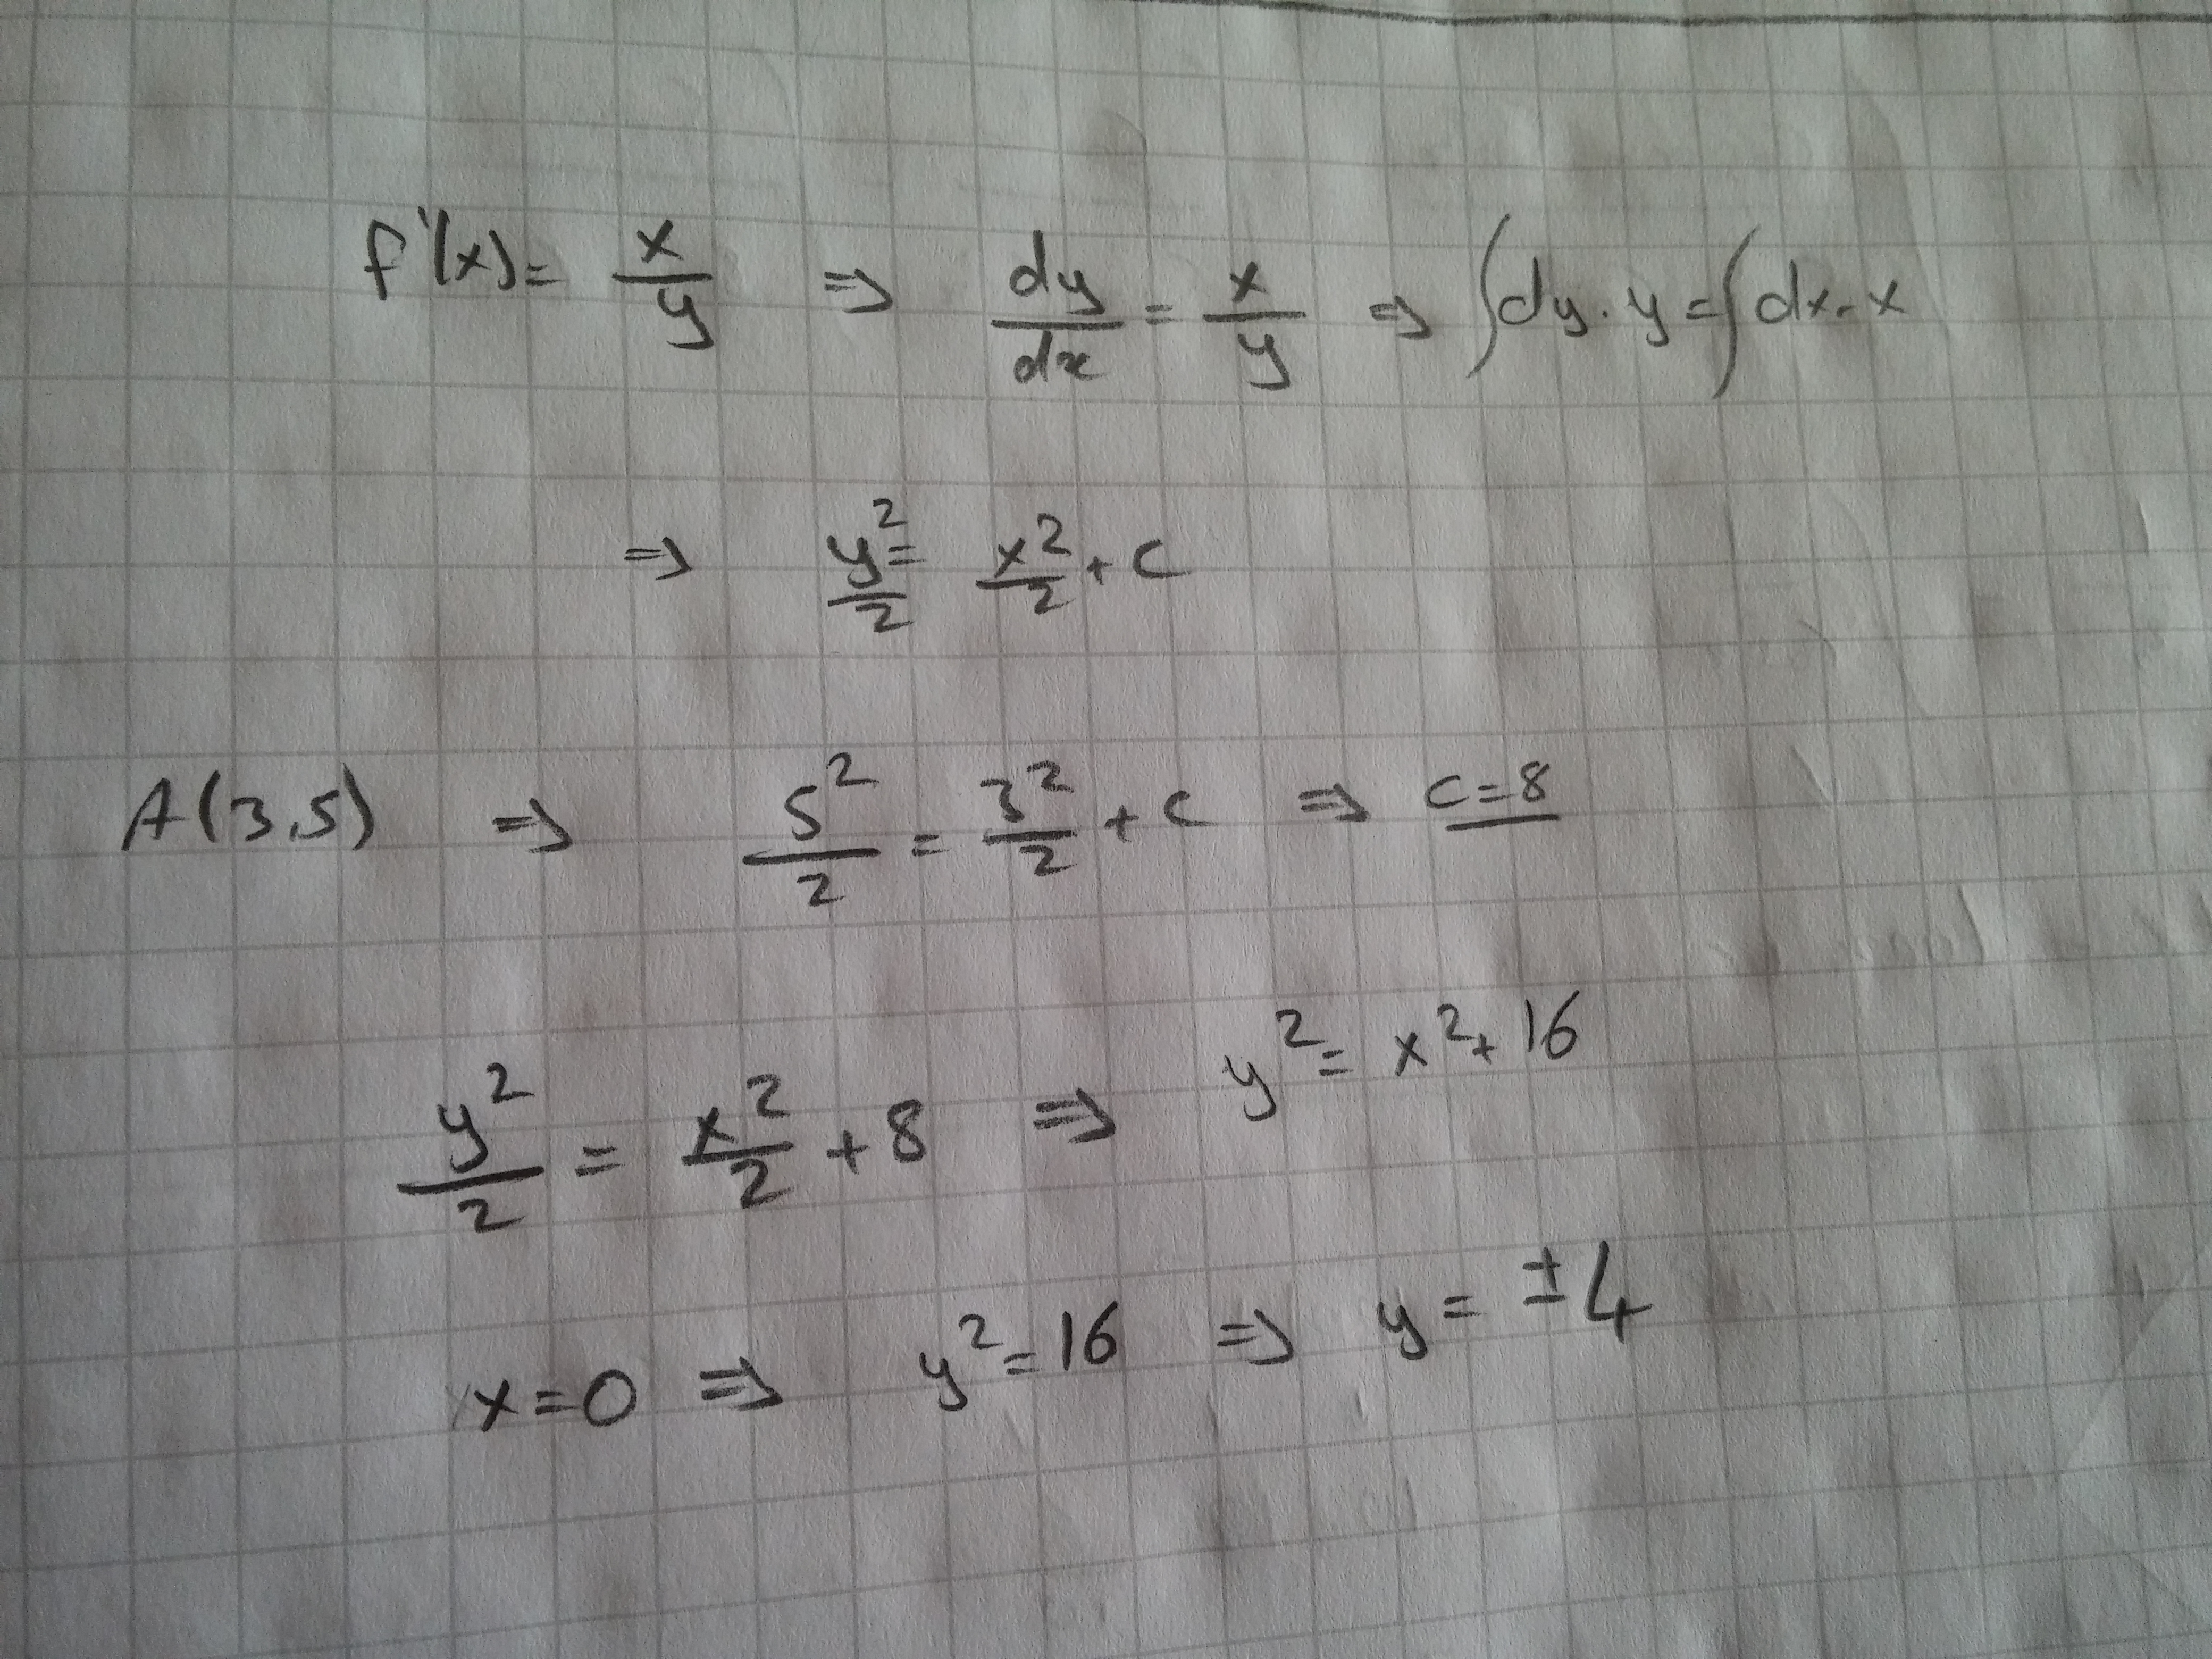 f'(x) = x/y ⇒ dy/dx = x/y ⇒ ∫dy·y = ∫dx·x
⇒ y²/2 = x²/2 + c
A(3,5) ⇒ 5²/2 = 3²/2 + c ⇒ c=8
y²/2 = x²/2 + 8 ⇒ y² = x² + 16
x=0 ⇒ y²=16 ⇒ y = ±4